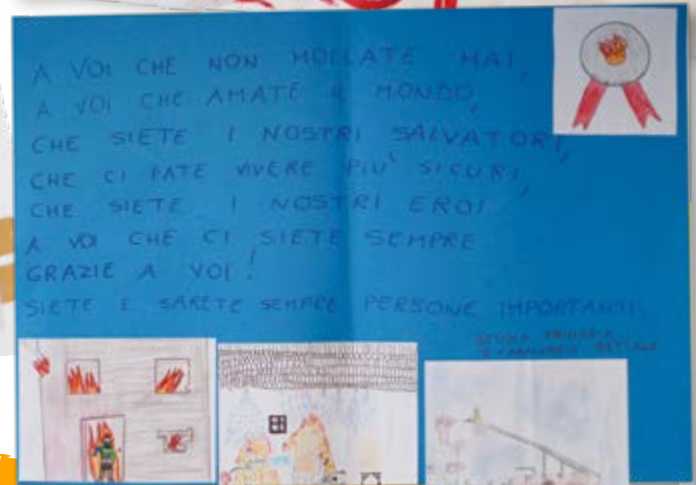 A VOI CHE NON MOLLATE MAI,
A VOI CHE AMATE IL MONDO,
CHE SIETE I NOSTRI SALVATORI,
CHE CI FATE VIVERE PIU' SICURI,
CHE SIETE I NOSTRI EROI
A VOI CHE CI SIETE SEMPRE
GRAZIE A VOI!
SIETE E SARETE SEMPRE PERSONE IMPORTANTI.
SCUOLA PRIMARIA